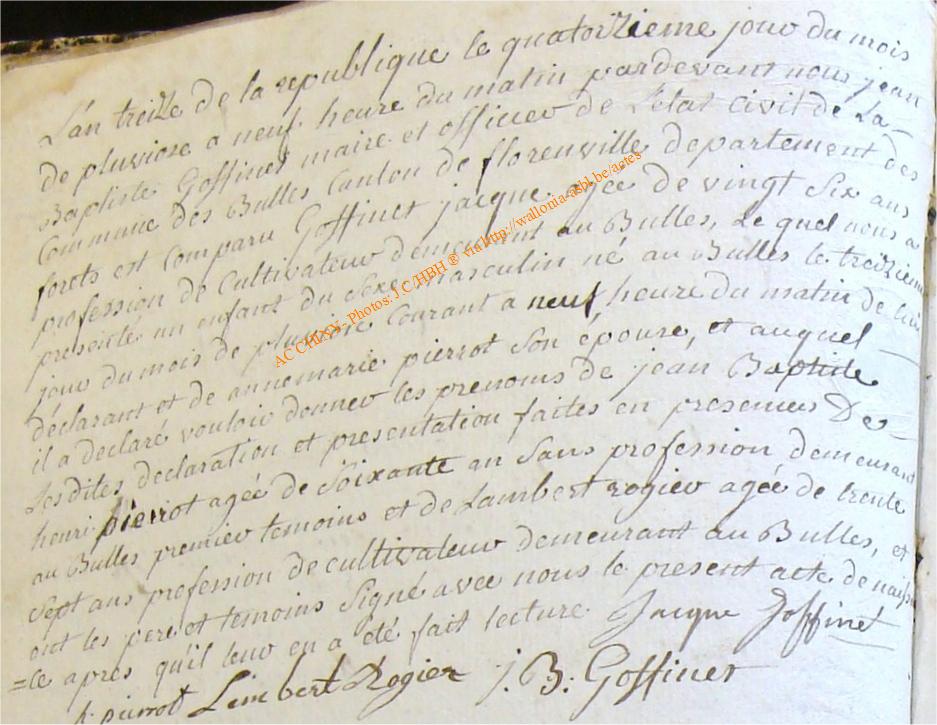 L'an treize de la republique le quatorzieme jour du mois
de pluviose a neuf heure du matin pardevant nous jean
Baptiste Goffinet maire et officier de L'etat civil de La-
Commune des Bulles Canton de florenville departement des
forets est comparu Goffinet jacque agée de vingt six ans
profession de Cultivateur demeurant au Bulles, Le quel nous a
presenté un enfant du Sexe masculin né au Bulles le treizieme
jour du mois de pluviose Courant a neuf heure du matin de lui
déclarant et de annemarie pierrot son épouse, et auquel
il a declaré vouloir donner les prenoms de jean Baptiste
Lesdites declaration et presentation faites en presences Des-
henri pierrot agée de Soixante an Sans profession demeurant
au Bulles premier temoins et de Lambert rogier agée de trente
Sept ans profession de cultivateur demeurant au Bulles, et
ont les pere et temoins Signé avec nous le present acte de naissan
=ce apres qu'il leur en a été fait lecture Jacque Goffiné
h pierrot Lambert Rogier j. B. Goffinet
ACCHLSX- Photos: J.C/HBH ® via http://wallonia-asbl.be/actes